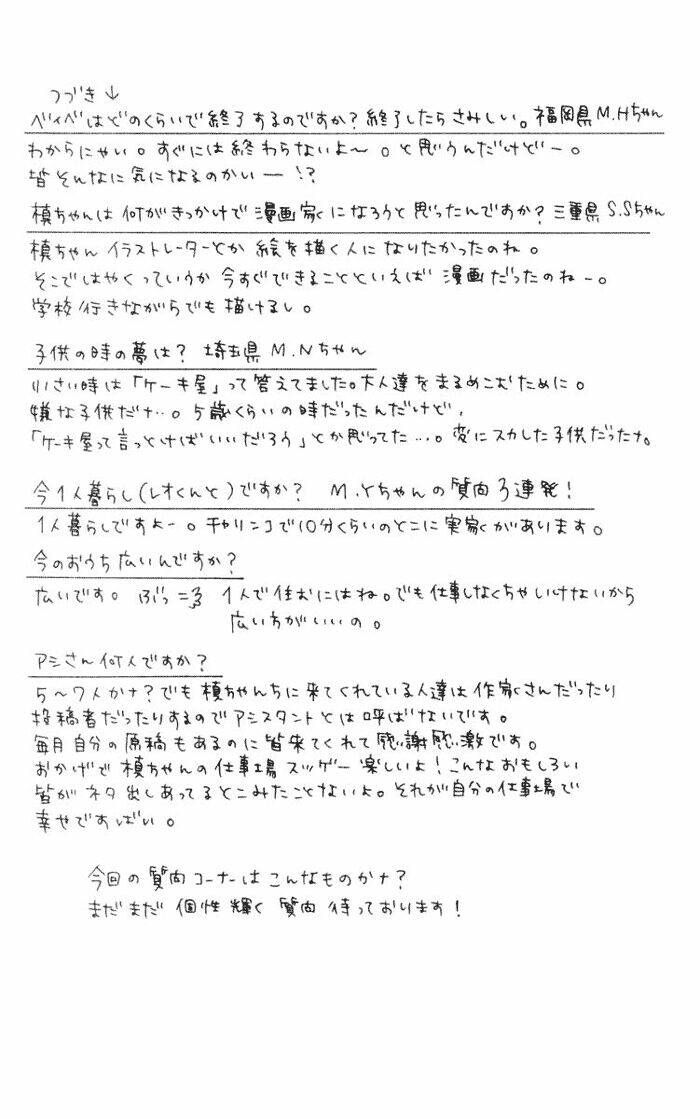 つづき↓
ベイベはどのくらいで終了するのですか?終了したらさみしい。福岡県M.Hちゃん
わからにゃい。すぐには終わらないよ〜。と思うんだけどー。
皆そんなに気になるのかいー!?
槙ちゃんは何がきっかけで漫画家になろうと思ったんですか?三重県S.Sちゃん
槙ちゃんイラストレーターとか絵を描く人になりたかったのね。
そこではやくっていうか今すぐできることといえば漫画だったのねー。
学校行きながらでも描けるし。
子供の時の夢は?埼玉県M.Nちゃん
小さい時は「ケーキ屋」って答えてました。大人達をまるめこむために。
嫌な子供だナ…。5歳くらいの時だったんだけど、
「ケーキ屋って言っとけばいいだろう」とか思ってた…。変にスカした子供だったナ。
今1人暮らし(レオくんと)ですか? M.Yちゃんの質問3連発!
1人暮らしですよー。チャリンコで10分くらいのとこに実家があります。
今のおうち広いんですか?
広いです。 1人で住むにはね。でも仕事しなくちゃいけないから
広い方がいいの。
アシさん何人ですか?
5〜7人かナ?でも槙ちゃんちに来てくれている人達は作家さんだったり
投稿者だったりするのでアシスタントとは呼ばないです。
毎月自分の原稿もあるのに皆来てくれて感謝感激です。
おかげで槙ちゃんの仕事場スッゲー楽しいよ!こんなおもしろい
皆がネタ出しあってるとこみたことないよ。それが自分の仕事場で
幸せですばい。
今回の質問コーナーはこんなものかナ?
まだまだ個性輝く質問待っております!